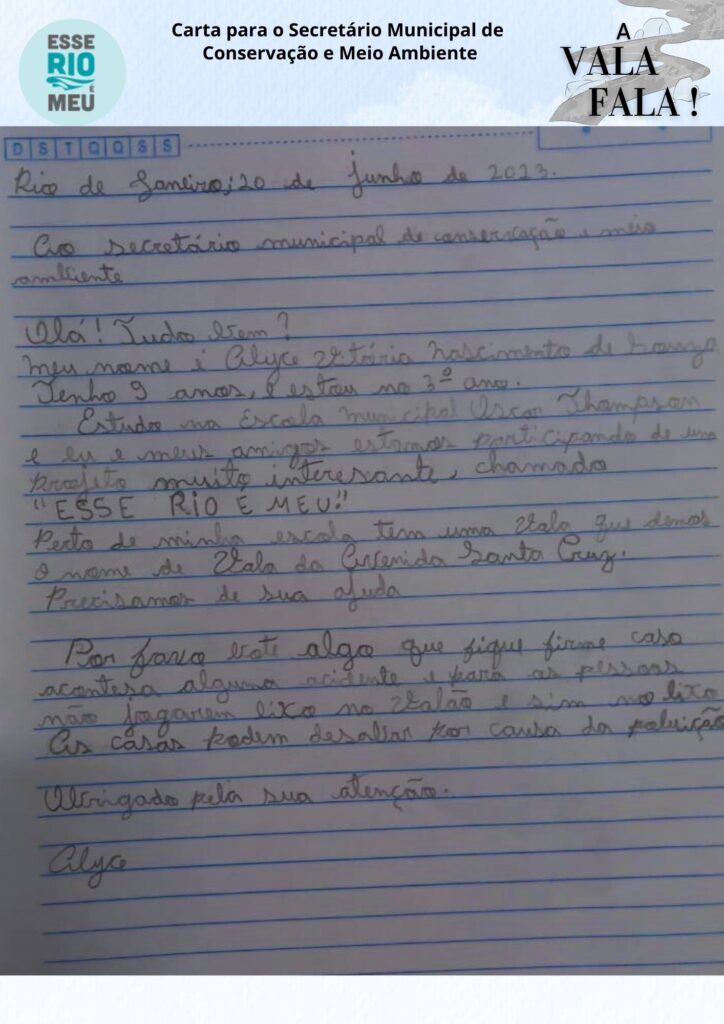 ESSE
RIO
É
MEU
Carta para o Secretário Municipal de
Conservação e Meio Ambiente
A
VALA
FALA!
D S T Q Q S S
Rio de Janeiro, 20 de junho de 2023.
Ao secretário municipal de conservação e meio
ambiente
Olá! Tudo bem?
Meu nome é Alyce Vitória Nascimento de Souza
Tenho 9 anos, e estou no 3º ano.
Estudo na Escola Municipal Oscar Thompson
e eu e meus amigos estamos participando de um
projeto muito interesante, chamado
"ESSE RIO É MEU!"
Perto de minha escola tem uma Vala que demos
o nome de Vala da Avenida Santa Cruz.
Precisamos de sua ajuda
Por favo bote algo que fique firme caso
acontesa alguma acidente e para as pessoas
não jogarem lixo no Valão e sim no lixo
As casas podem desabar por causa da poluição
Obrigado pela sua atenção.
Alyce